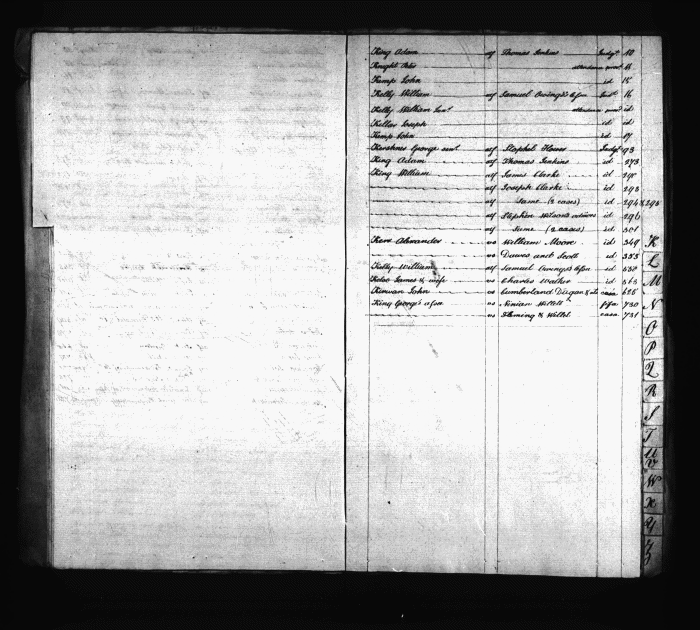 King Adam agt Thomas Jenkins Judgt. 10
Knight Peter attendance 11
Kemp John id 15
Kelly William agt Samuel Owings's 16
Kelly William Senr. attendance id
Keller Joseph id id
Kemp John id 17
Kershner George senr. vs Stephen Judgt. 93
King Adam agt Thomas Jenkins id 273
King William agt James Clarke id
agt Joseph Clarke id 293
agt Same (2 cases) id 294 & 295
agt Stephen Wilson's id 296
agt Same (2 cases) id 301
Kerr Alexander vs William Moore id 349
vs Dawes and Scott id 353
Kelly William agt Samuel Owings's id
Kelso James & wife vs Charles Walker id 563
Kirwan John vs Cumberland Dugan casa 625
King George's vs Ninian Willett fifa 730
vs Fleming & Willet casa 731
K
L
M
N
O
P
Q
R
S
T
U
V
W
X
Y
Z